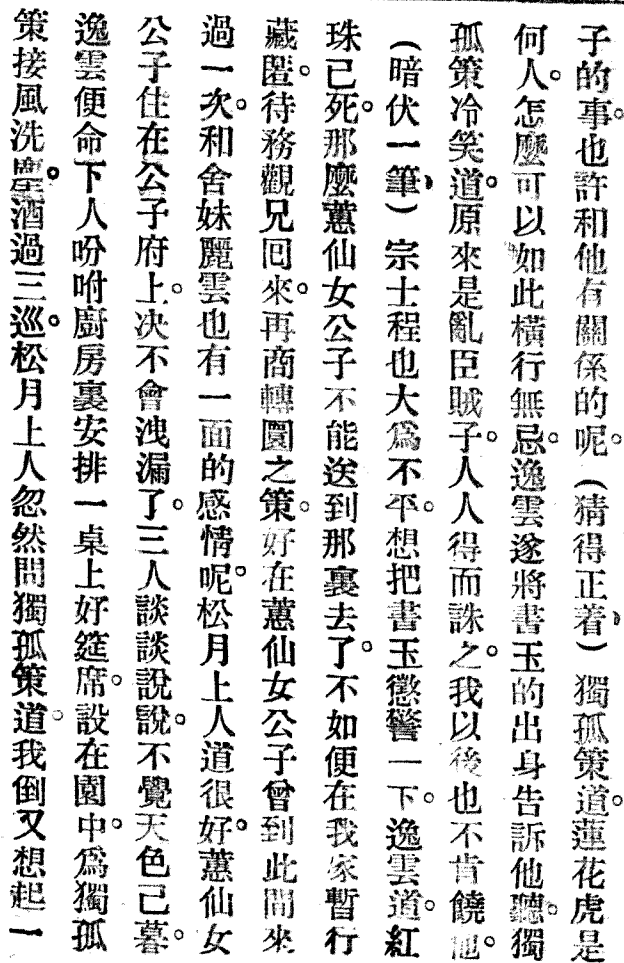 子的事。也許和他有關係的呢。(猜得正着)獨孤策道。蓮花虎是
何人。怎麼可以如此橫行無忌。逸雲遂將書玉的出身告訴他聽。獨
孤策冷笑道。原來是亂臣賊子。人人得而誅之。我以後也不肯饒他。
(暗伏一筆)宗士程也大爲不平。想把書玉懲警一下。逸雲道。紅
珠已死。那麼蕙仙女公子不能送到那裏去了。不如便在我家暫行
藏匿。待務觀兄回來。再商轉圜之策。好在蕙仙女公子曾到此間來
過一次。和舍妹麗雲也有一面的感情呢。松月上人道很好。蕙仙女
公子住在公子府上。决不會洩漏了。三人談談說說。不覺天色已暮。
逸雲便命下人吩咐廚房裏安排一桌上好筵席。設在園中。爲獨孤
策接風洗塵。酒過三巡。松月上人忽然問獨孤策道。我倒又想起一